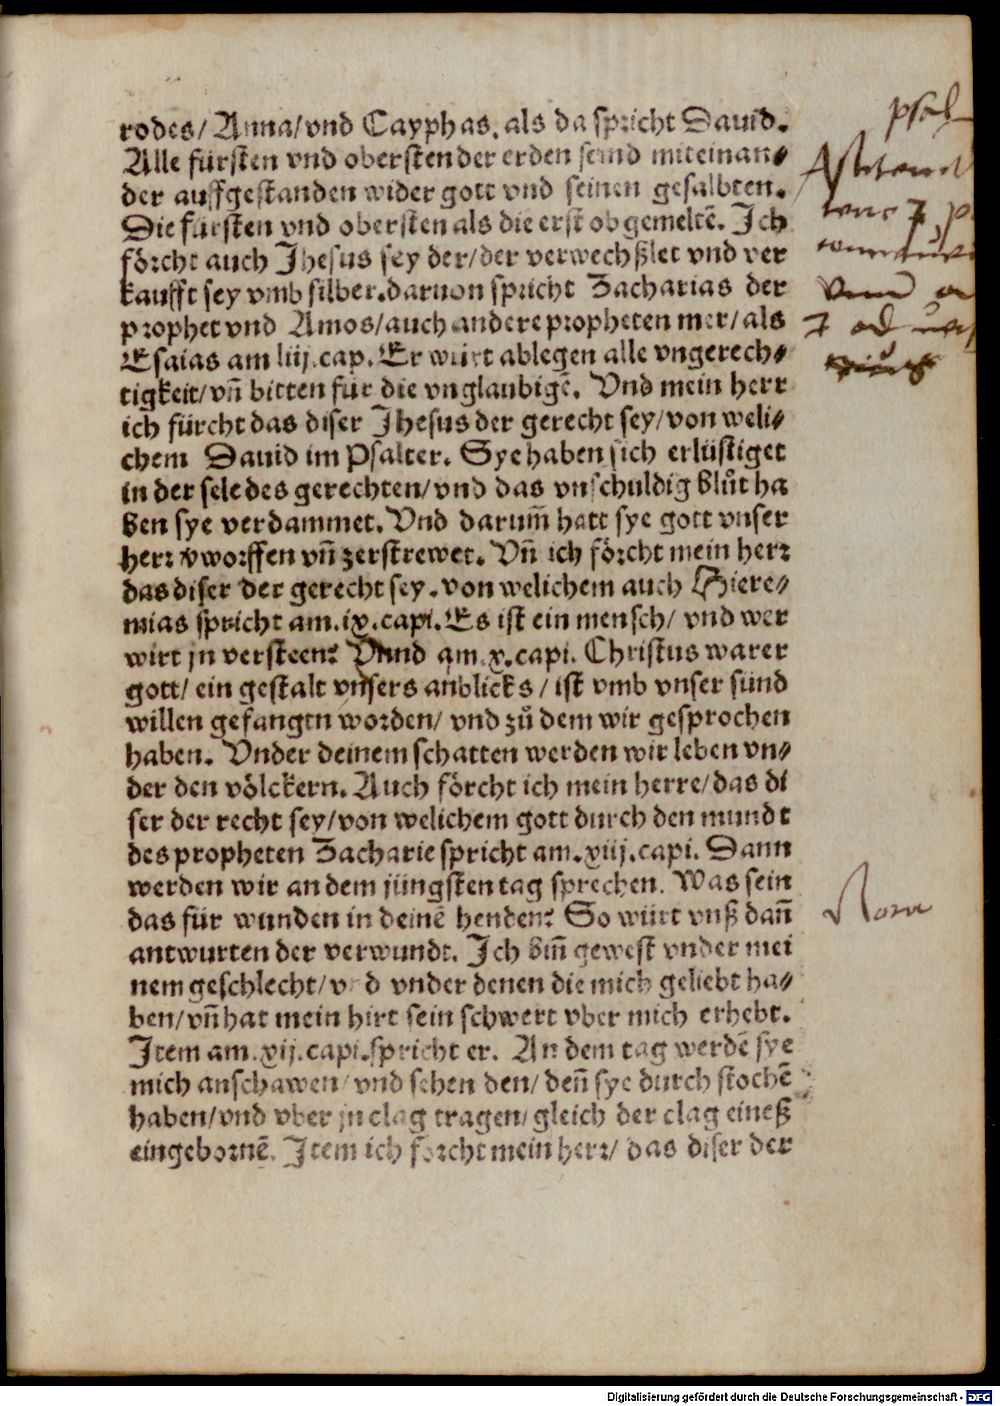 rodes/ Anna/vnd Cayphas. als da spricht Dauid.
Alle fürsten vnd obersten der erden seind miteinan⸗
der auffgestanden wider gott vnd seinen gesalbten.
Die fürsten vnd obersten als die erst obgemeltē. Ich
förcht auch Jhesus sey der/der verwechßlet vnd ver
kaufft sey vmb silber.daruon spricht Zacharias der
prophet vnd Amos/auch andere propheten mer/als
Esaias am liij.cap. Er würt ablegen alle vngerech⸗
tigkeit/vn̄ bitten für die vnglaubigē. Vnd mein herr
ich fürcht das diser Jhesus der gerecht sey/von weli⸗
chem Dauid im Psalter. Sye haben sich erlüstiget
in der sele des gerechten/vnd das vnschuldig blůt ha
ben sye verdammet. Vnd darum̄ hatt sye gott vnser
herr v̓worffen vn̄ zerstrewet. Vn̄ ich förcht mein herr
das diser der gerecht sey. von welichem auch Hiere⸗
mias spricht am.ix.capi. Es ist ein mensch/ vnd wer
wirt jn versteen? Vnnd am.x.capi. Christus warer
gott/ ein gestalt vnsers anblicks/ ist vmb vnser sünd
willen gefangen worden/ vnd zů dem wir gesprochen
haben. Vnder deinem schatten werden wir leben vn⸗
der den völckern. Auch förcht ich mein herre/das di
ser der recht sey/von welichem gott durch den mundt
des propheten Zacharie spricht am.xiij.capi. Dann
werden wir an dem jüngsten tag sprechen. Was sein
das für wunden in deinē henden? So würt vnß dan̄
antwurten der verwundt. Ich bin̄ gewest vnder mei
nem geschlecht/vnd vnder denen die mich geliebt ha⸗
ben/vn̄ hat mein hirt sein schwert vber mich erhebt.
Item am.xij.capi.spricht er. An dem tag werdē sye
mich anschawen/vnd sehen den/den̄ sye durch stochē
haben/vnd vber jn clag tragen/gleich der clag eineß
eingebornē. Item ich förcht mein herr/ das diser der
psal
Digitalisierung gefördert durch die Deutsche Forschungsgemeinschaft - DFG